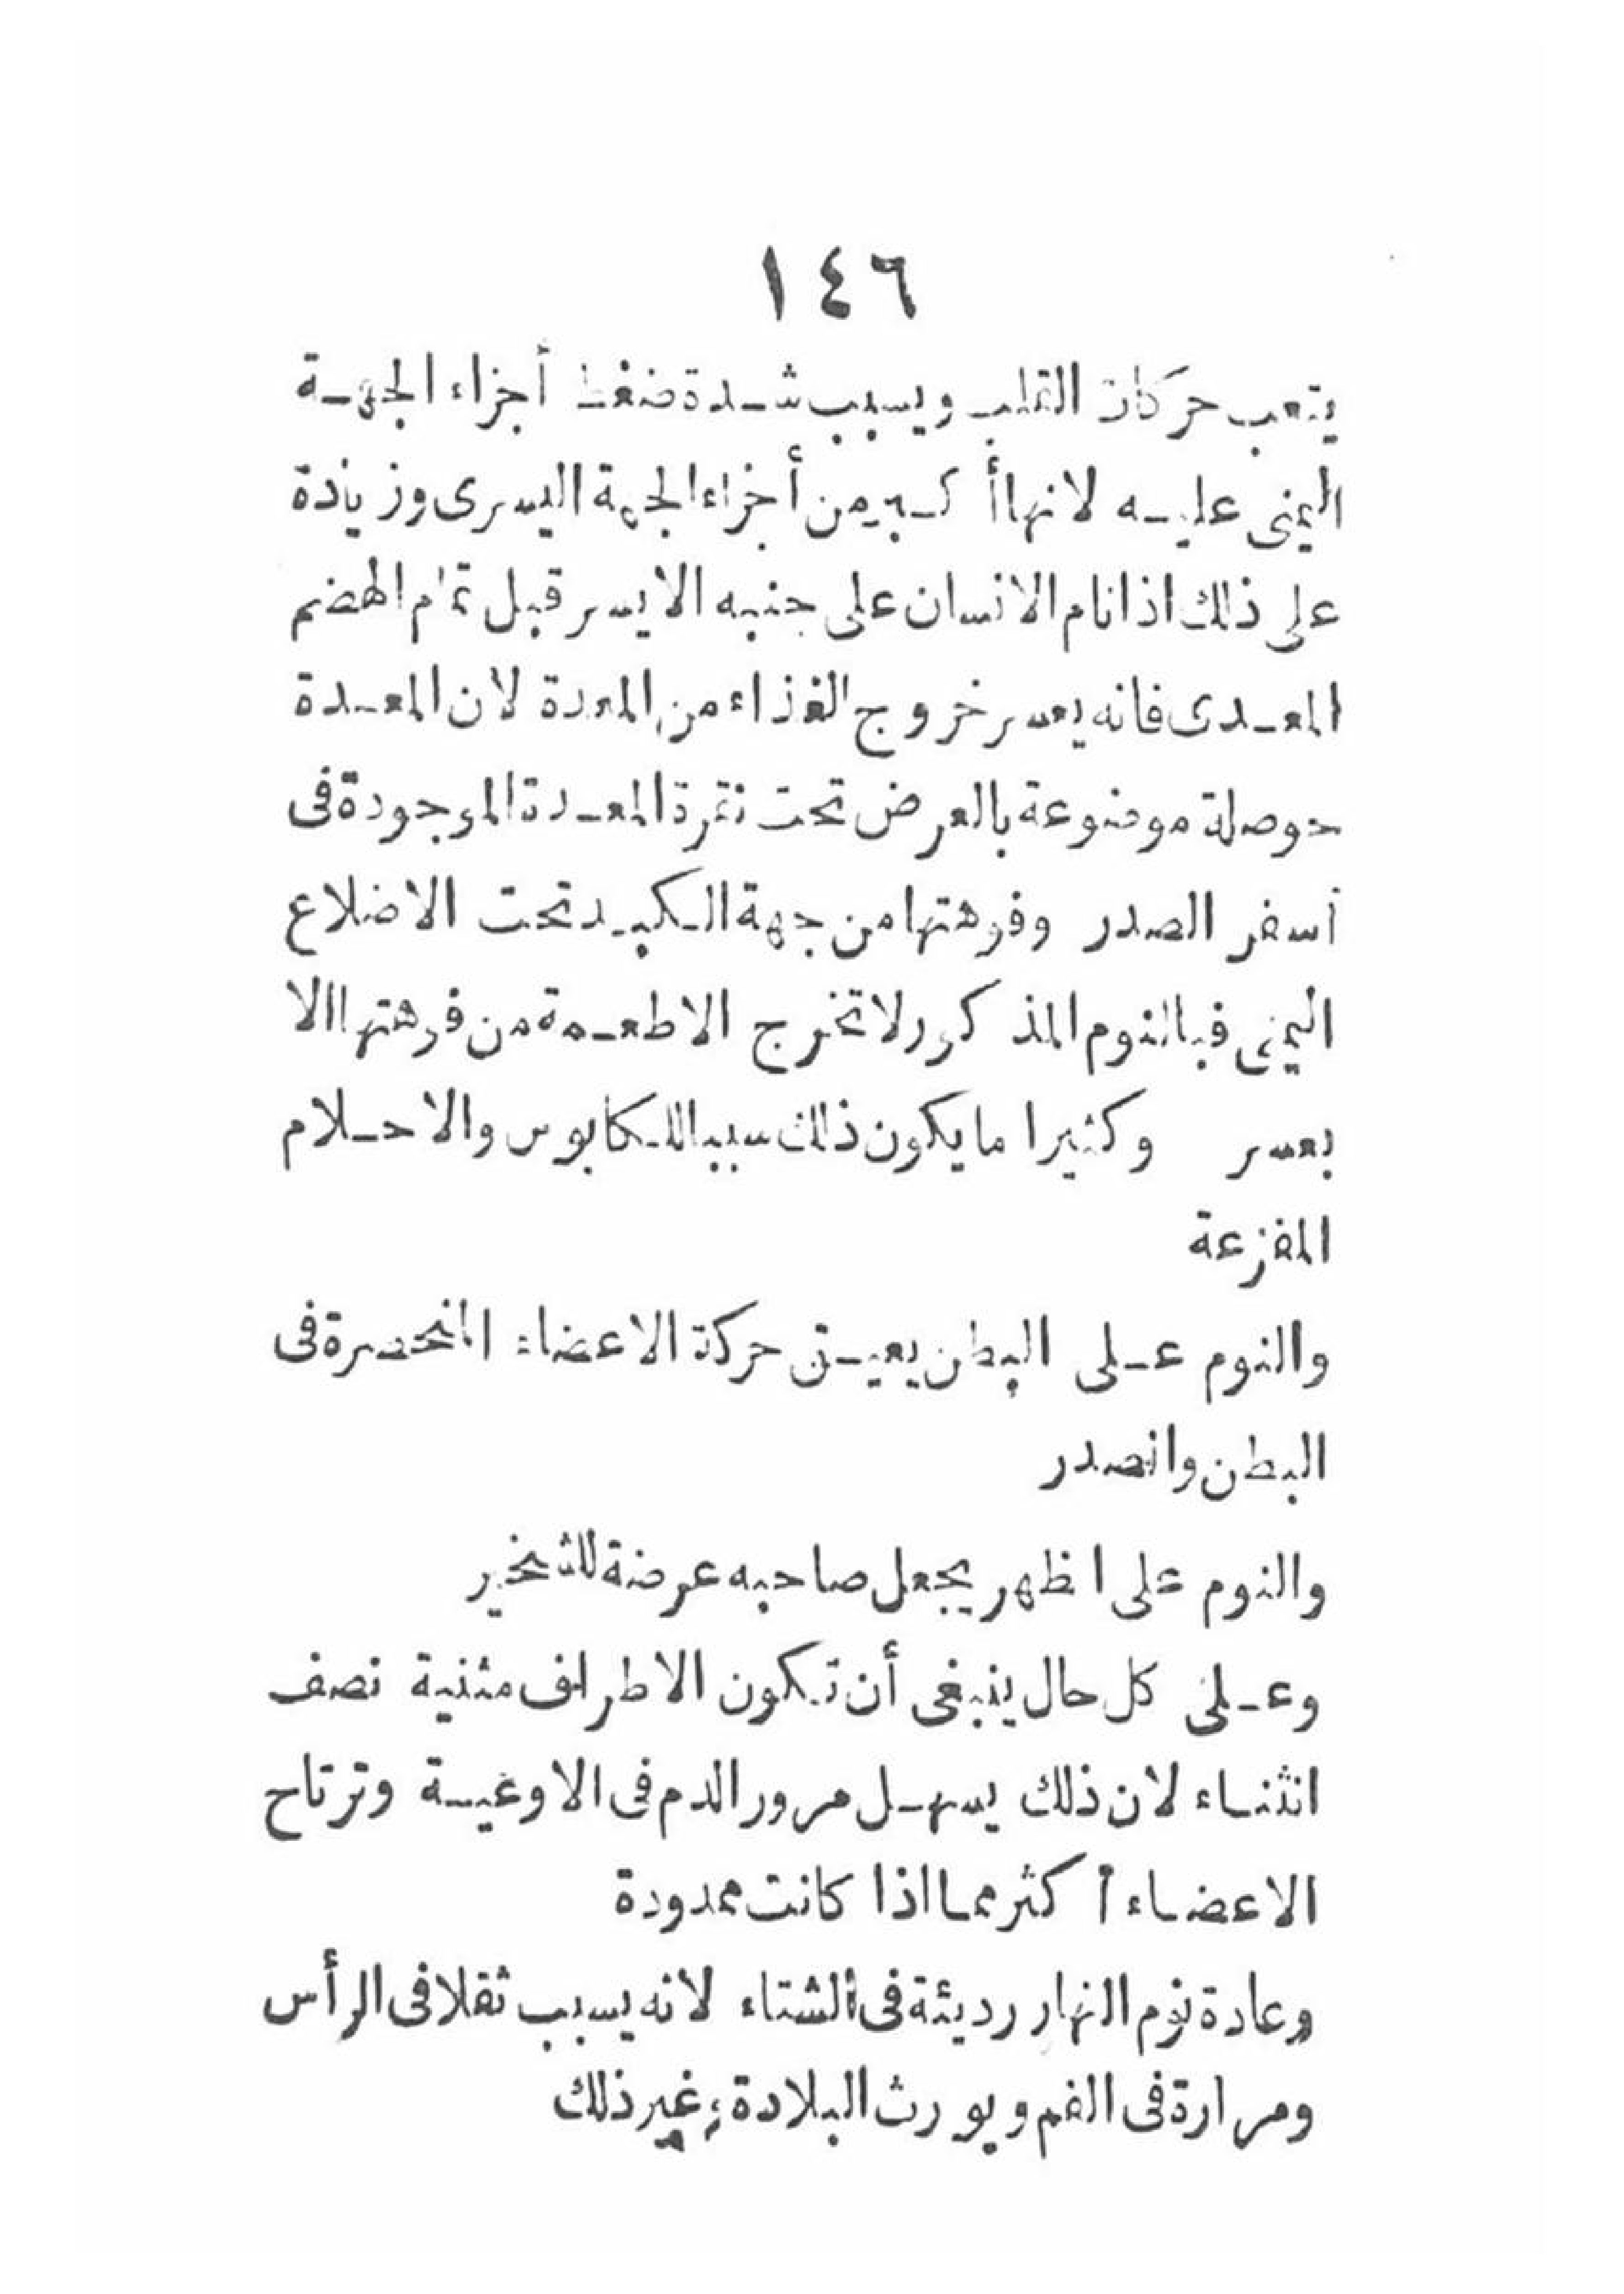 ١٤٦
يتعب حركات القلب ويسبب شدة ضغط أجزاء الجهة
اليمنى عليه لانها أكبر من أجزاء الجهة اليسرى وزيادة
على ذلك اذا نام الانسان على جنبه الايسر قبل تمام الهضم
المعدى فانه يعسر خروج الغذاء من المعدة لان المعدة
حوصلة موضوعة بالعرض تحت نقرة المعدة الموجودة فى
أسفر الصدر وفوهتها من جهة الكبد تحت الاضلاع
اليمنى فبالنوم المذكور لا تخرج الاطعمة من فوهتها الا
بعسر وكثيرا ما يكون ذلك سببا للكابوس والاحلام
المفزعة
والنوم على البطن يعيق حركة الاعضاء المنحصرة فى
البطن والصدر
والنوم على اظهر يجعل صاحبه عرضة للشخير
وعلى كل حال ينبغى أن تكون الاطراف مثنية نصف
انثناء لان ذلك يسهل مرور الدم فى الاوعية وترتاح
الاعضاء أكثر مما اذا كانت ممدودة
وعادة نوم النهار رديئة فى الشتاء لانه يسبب ثقلا فى الرأس
ومرارة فى الفم ويورث البلادة وغير ذلك